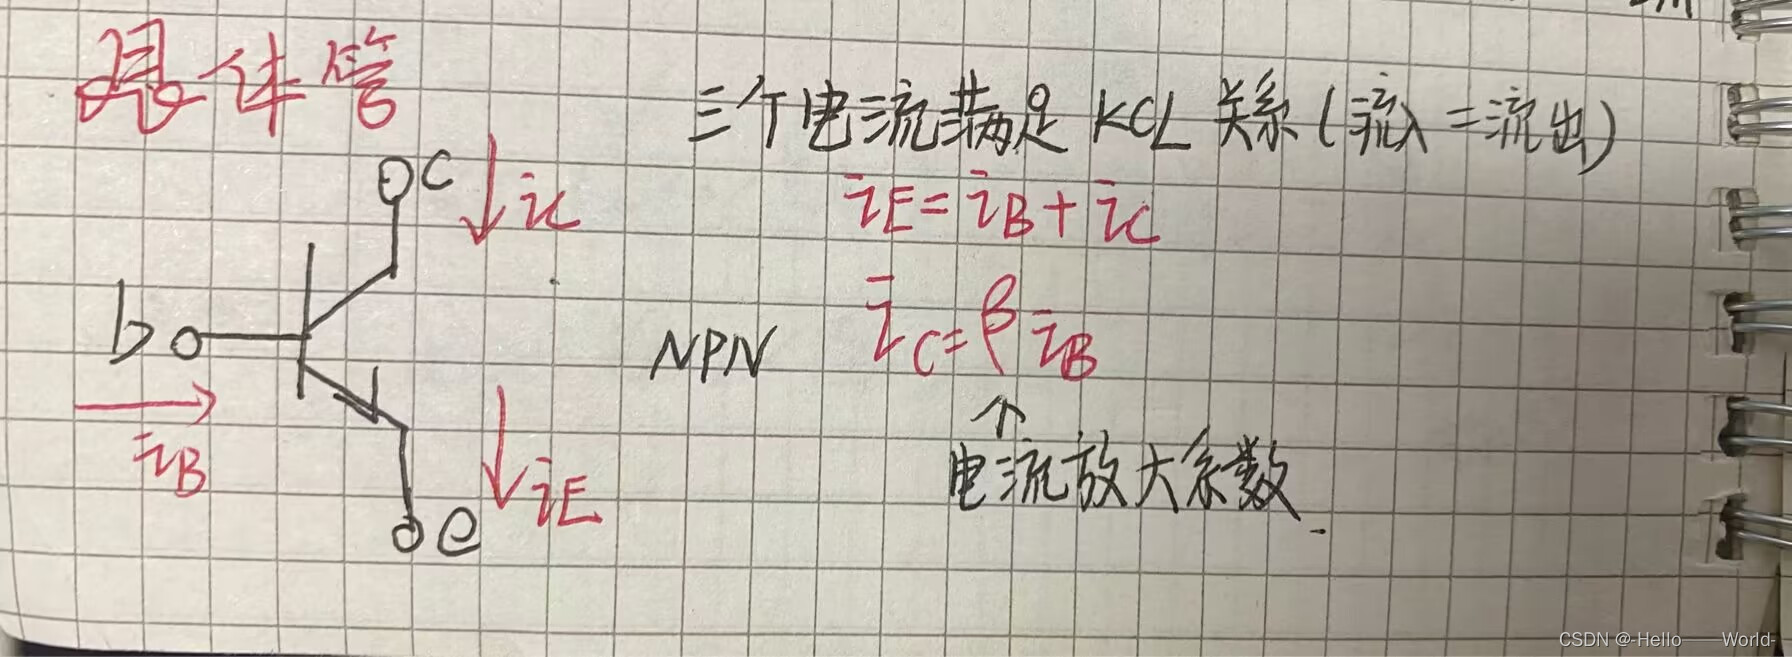 晶体管
三个电流满足 KCL 关系(流入=流出)
c
iC
iE=iB+iC
b
NPN
iC=βiB
iB
↑
电流放大系数.
iE
e
CSDN @-Hello World-